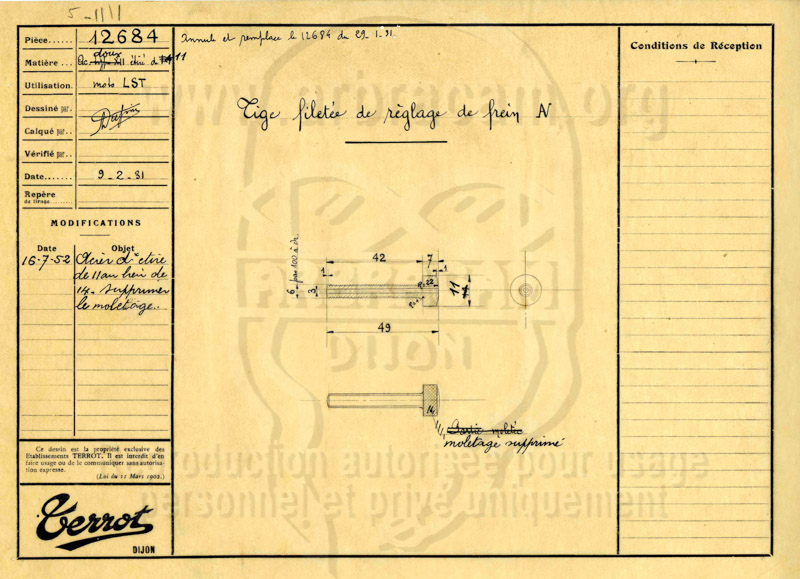 5-1111
Pièce...... 12684
doux
Matière... Ac. type XII étiré d. 14 11
Utilisation. moto LST
Dessiné par.
Calqué par..
Vérifié par..
Date....... 9-2-31
Repère
de tirage
MODIFICATIONS
Date Objet
16-7-52 Acier dx étiré
de 11 au lieu de
14. supprimer
le moletage..
Ce dessin est la propriété exclusive des
Etablissements TERROT. Il est interdit d'en
faire usage ou de le communiquer sans autorisa-
tion expresse.
(Loi du 11 Mars 1902.)
Terrot
DIJON
Annule et remplace le 12684 du 29.1.31.
Tige filetée de règlage de frein AV
42 7
1 1
6 pas 100 à dr.
3
R=22
R=1
11 14
49
14
Partie moletée
moletage supprimé
Conditions de Réception
www.arbracam.org
DIJON
Reproduction autorisée pour usage
personnel et privé uniquement